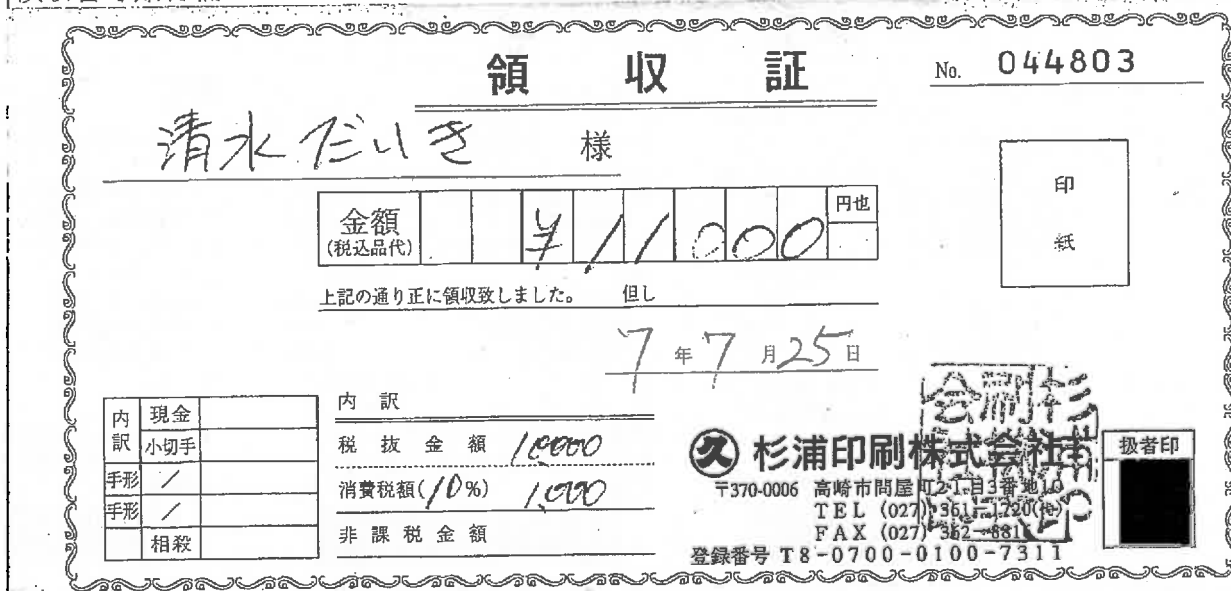 領収証
No. 044803
清水だいき 様
印紙
金額
(税込品代)
¥11000
円也
上記の通り正に領収致しました。 但し
7年7月25日
内訳
現金
小切手
手形 /
手形 /
相殺
内訳
税抜金額 10,000
消費税額(10%) 1,000
非課税金額
久 杉浦印刷株式会社
扱者印
〒370-0006 高崎市問屋町2丁目3番地10
TEL (027) 361-1720(代)
FAX (027) 362-881
登録番号 T8-0700-0100-7311